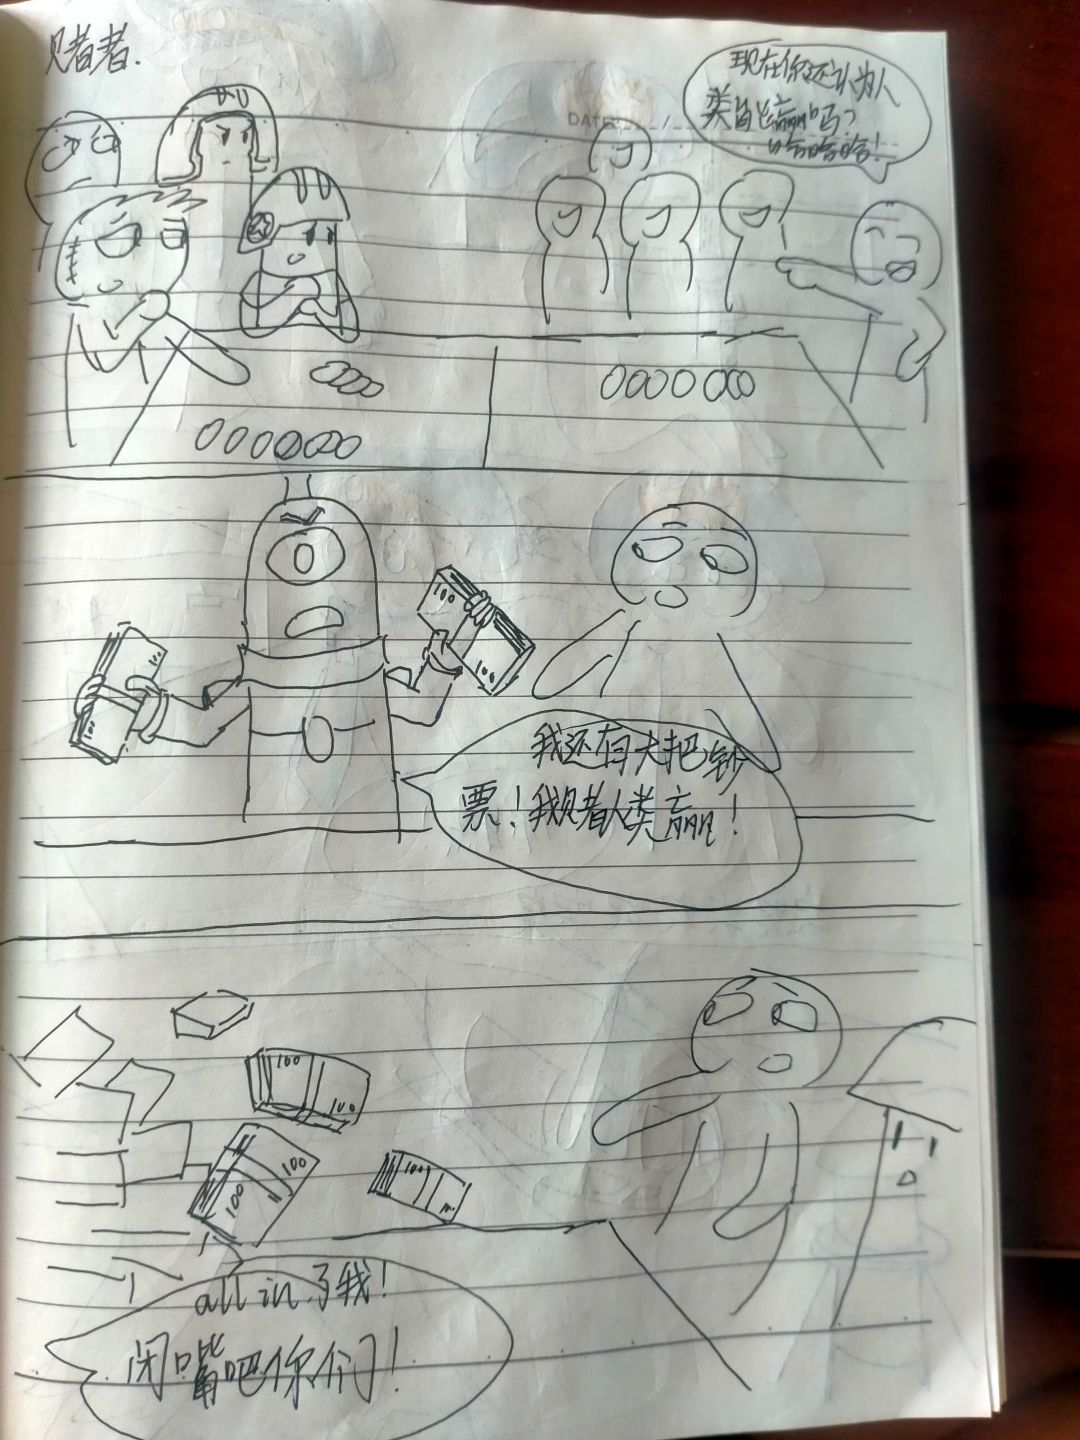 赌者.
DATE
现在你还认为人
类能赢吗?
哈哈哈!
100
100
100
100
我还有大把钞
票!我赌人类赢!
100
100
100
100
100
all in了我!
闭嘴吧你们!